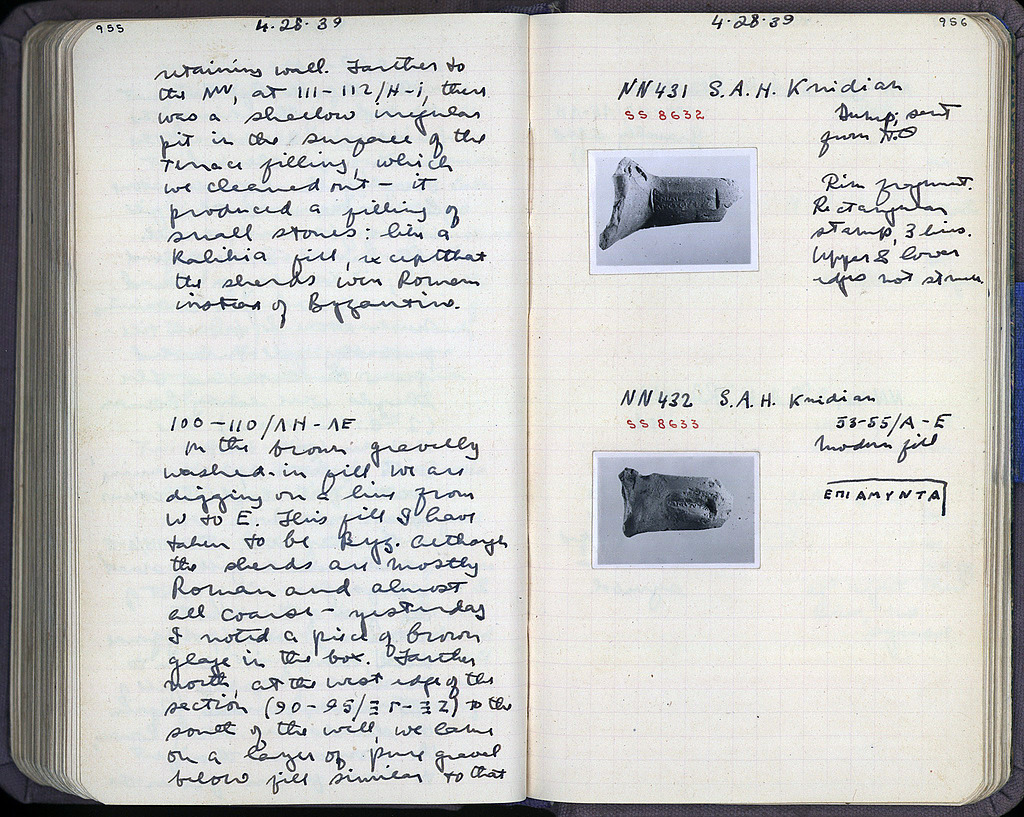 955
4-28-39
retaining wall. Farther to
the NW, at 111-112/H-i, there
was a shallow irregular
pit in the surface of the
Terrace filling, which
we cleaned out – it
produced a filling of
small stones: like a
Kalikia fill, except that
the sherds were Roman
instead of Byzantine.
100-110/ΛH-ΛE
In the brown gravelly
washed-in fill we are
digging on a line from
W to E. This fill I have
taken to be Byz. although
the sherds are mostly
Roman and almost
all coarse – yesterday
I noted a piece of brown
glaze in the box. Farther
north, at the west edge of the
section (90-95/ΞΓ-ΞΖ) to the
south of the well, we came
on a layer of pure gravel
below fill similar to that
956
4-28-39
NN431 S.A.H. Knidian
SS 8632
Dump; sent
from
Rim fragment.
Rectangular
stamp, 3 lines.
Upper & lower
edges not struck
NN432 S.A.H. Knidian
SS 8633
53-55/A-E
Modern fill
ΕΠΙΑΜΥΝΤΑ